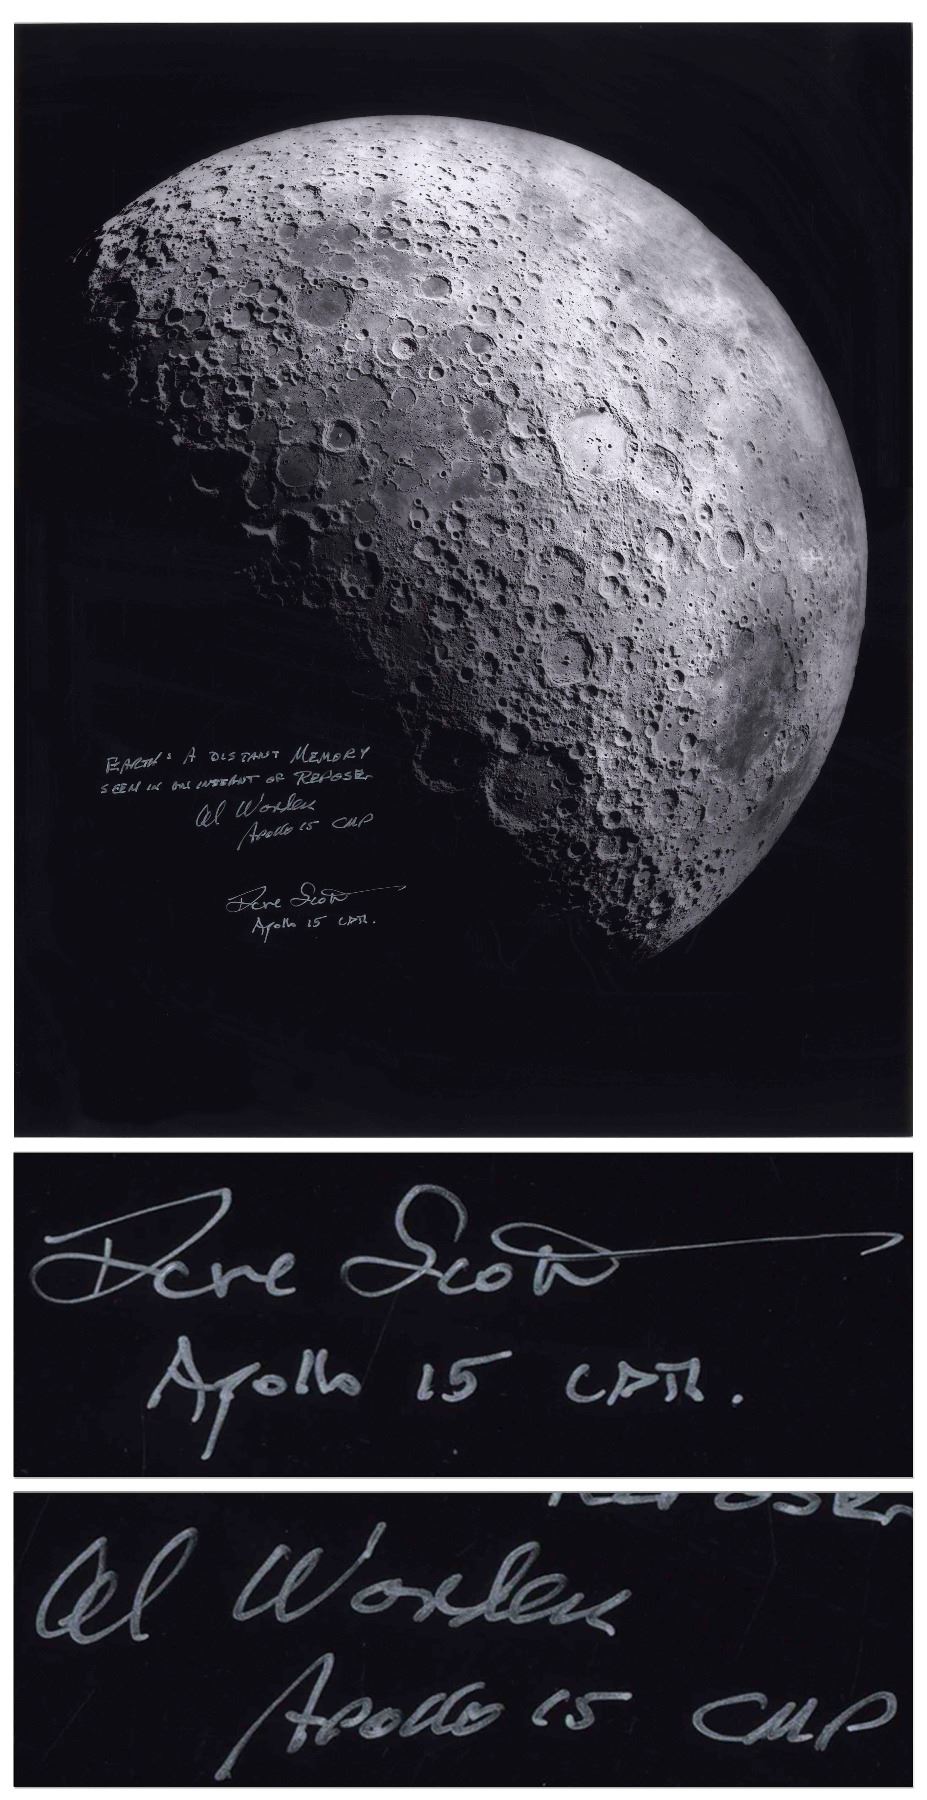 EARTH: A DISTANT MEMORY
SEEN IN AN INSTANT OF REPOSE.
Al Worden
Apollo 15 CMP
Dave Scott
Apollo 15 CDR.
Dave Scott
Apollo 15 CDR.
REPOSE.
Al Worden
Apollo 15 CMP